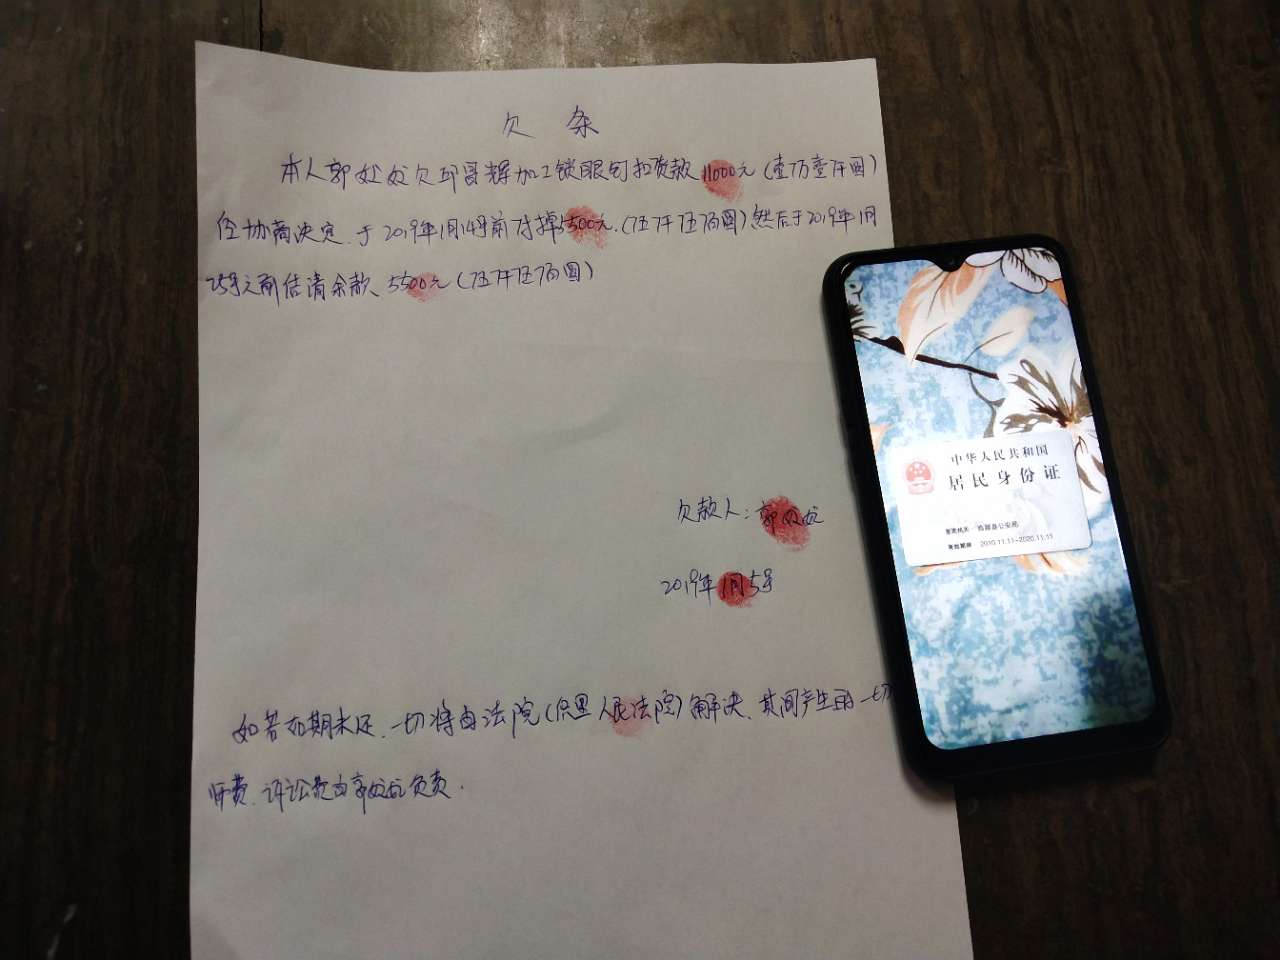 欠 条
本人郭姣姣欠邱晋辉加工锁眼钉扣货款11000元(壹万壹仟圆)
经协商决定、于2019年1月14号前付掉5500元.(伍仟伍佰圆)然后于2019年1月
25号之前结清余款、5500元(伍仟伍佰圆)
欠款人:郭姣姣
2019年1月5号
如若如期未还、一切将由法院(人民法院)解决、其间产生的一切
师费、诉讼费由郭姣姣负责.
中华人民共和国
居民身份证
签发机关
公安局
有效期限 2010.11.11-2020.11.11